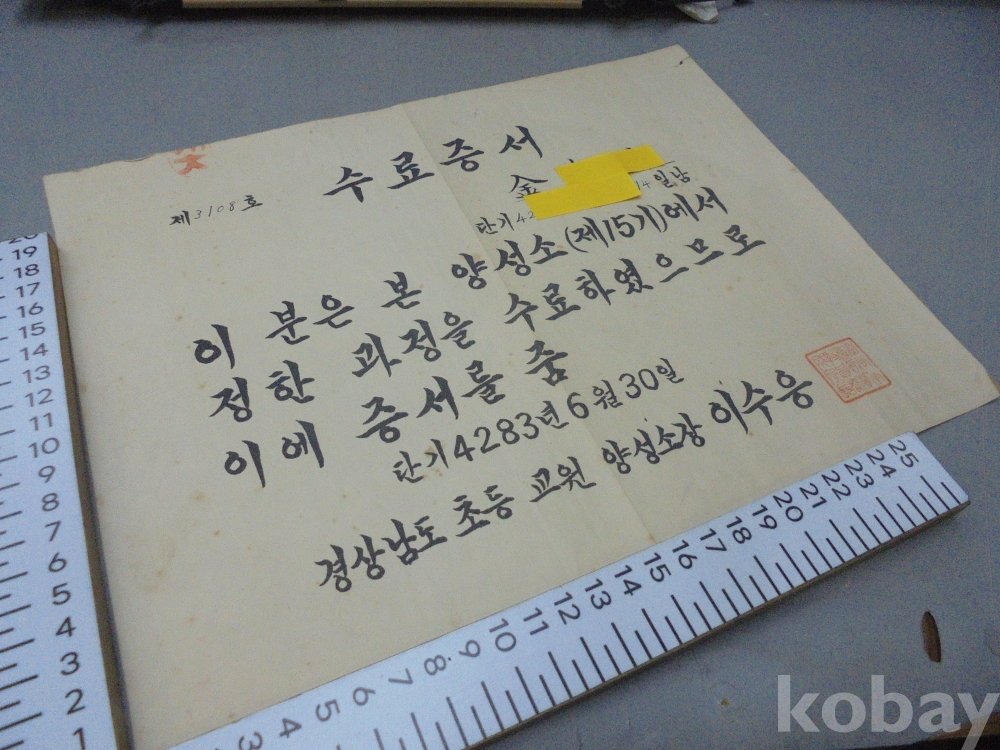 수료증서
제3108호
金
단기42 14일남
이 분은 본 양성소(제15기)에서
정한 과정을 수료하였으므로
이에 증서를 줌
단기4283년6월30일
경상남도 초등 교원 양성소장 이수응
20 19 18 17 16 15 14 13 12 11 10 9 8 7 6 5 4 3 2 1
3 4 5 6 7 8 9 10 11 12 13 14 15 16 17 18 19 20 21 22 23 24 25
kobay